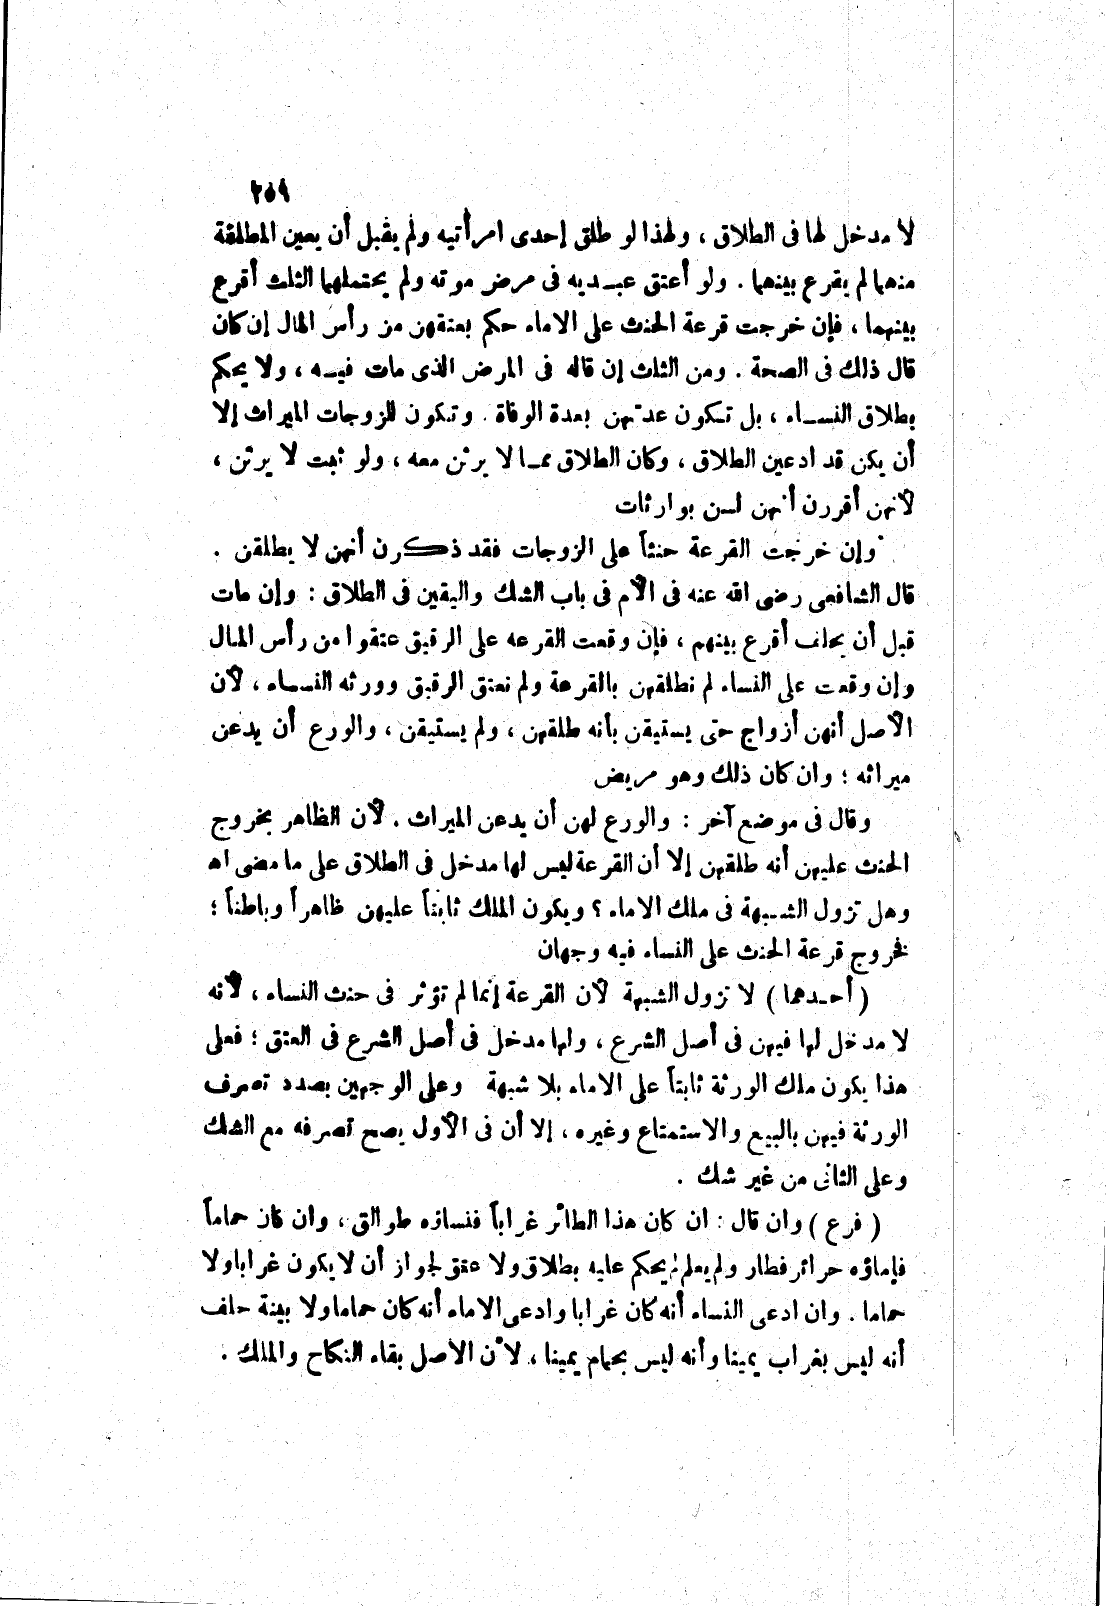 ٢٥٩
لا مدخل لها فى الطلاق ، ولهذا لو طلق إحدى امرأتيه ولم يقبل أن يعين المطلقة
منهما لم يقرع بينهما . ولو أعتق عبديه فى مرض موته ولم يحتملهما الثلث أقرع
بينهما ، فإن خرجت قرعة الحنث على الاماء حكم بعتقهن من رأس المال إن كان
قال ذلك فى الصحة . ومن الثلث إن قاله فى المرض الذى مات فيه ، ولا يحكم
بطلاق النساء ، بل تكون عدتهن بعدة الوفاة . وتكون للزوجات الميراث إلا
أن يكن قد ادعين الطلاق ، وكان الطلاق مما لا يرثن معه ، ولو ثبت لا يرثن ،
لأنهن أقررن أنهن لسن بوارثات
وإن خرجت القرعة حنثاً على الزوجات فقد ذكرن أنهن لا يطلقن .
قال الشافعى رضى الله عنه فى الأم فى باب الشك واليقين فى الطلاق : وإن مات
قبل أن يحلف أقرع بينهم ، فإن وقعت القرعه على الرقيق عتقوا من رأس المال
وإن وقعت على النساء لم نطلقهن بالقرعة ولم نعتق الرقيق وورثه النساء ، لأن
الأصل أنهن أزواج حتى يستيقن بأنه طلقهن ، ولم يستيقن ، والورع أن يدعن
ميراثه ؛ وان كان ذلك وهو مريض
وقال فى موضع آخر : والورع لهن أن يدعن الميراث . لأن الظاهر بخروج
الحنث عليهن أنه طلقهن إلا أن القرعة ليس لها مدخل فى الطلاق على ما مضى اه
وهل تزول الشبهة فى ملك الاماء ؟ ويكون الملك ثابتاً عليهن ظاهراً وباطناً ؛
فخروج قرعة الحنث على النساء فيه وجهان
( أحدهما ) لا تزول الشبهة لأن القرعة إنما لم تؤثر فى حنث النساء ، لأنه
لا مدخل لها فيهن فى أصل الشرع ، ولها مدخل فى أصل الشرع فى العتق ؛ فعلى
هذا يكون ملك الورثة ثابتاً على الاماء بلا شبهة وعلى الوجهين بصدد تصرف
الورثة فيهن بالبيع والاستمتاع وغيره ، إلا أن فى الأول يصح تصرفه مع الشك
وعلى الثانى من غير شك .
( فرع ) وان قال : ان كان هذا الطائر غراباً فنساؤه طوالق ، وان كان حماماً
فإماؤه حرائر فطار ولم يعلم لم يحكم عليه بطلاق ولا عتق لجواز أن لا يكون غرابا ولا
حماما . وان ادعى النساء أنه كان غرابا وادعى الاماء أنه كان حماما ولا بينة حلف
أنه ليس بغراب يمينا وأنه ليس بحمام يمينا ، لأن الأصل بقاء النكاح والملك .